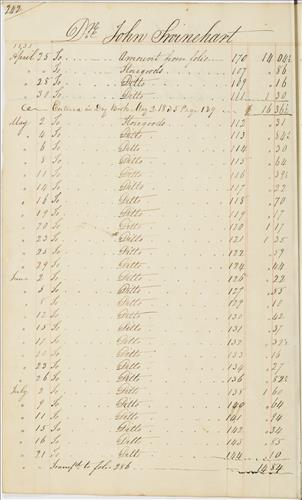 242
Dr. John Swinehart
1835
April 25 To Amount from folio 170 14.04½
" " To Storegoods 107 .86
" 28 To Ditto 109 .16
" 30 To Ditto 111 1.30
Entered in Day Book. Aug 3. 1835 Page 129 $ 16 36½
May 2 To Storegoods 112 .31
" 4 To Ditto 113 .84½
" 6 To Ditto 114 .30
" 8 To Ditto 115 .64
" 11 To Ditto 116 .39½
" 14 To Ditto 117 .22
" 16 To Ditto 118 .70
" 19 To Ditto 119 .17
" 20 To Ditto 120 .17
" 23 To Ditto 121 1.35
" 25 To Ditto 122 .59
" 29 To Ditto 124 .44
June To Ditto 125 .22
" 5 To Ditto 127 .85
" 8 To Ditto 129 .10
" 12 To Ditto 130 .42
" 15 To Ditto 131 .37
" 17 To Ditto 132
" 20 To Ditto 133 .16
" 23 To Ditto 134 .27
" 26 To Ditto 136
July 2 To Ditto 138
" 9 To Ditto 140 .64
" 11 To Ditto 141 .84
" 15 To Ditto 142 .34
" 16 To Ditto 143 .85
" 21 To Ditto 144 .10
" Transfd. to folio 286 14 84